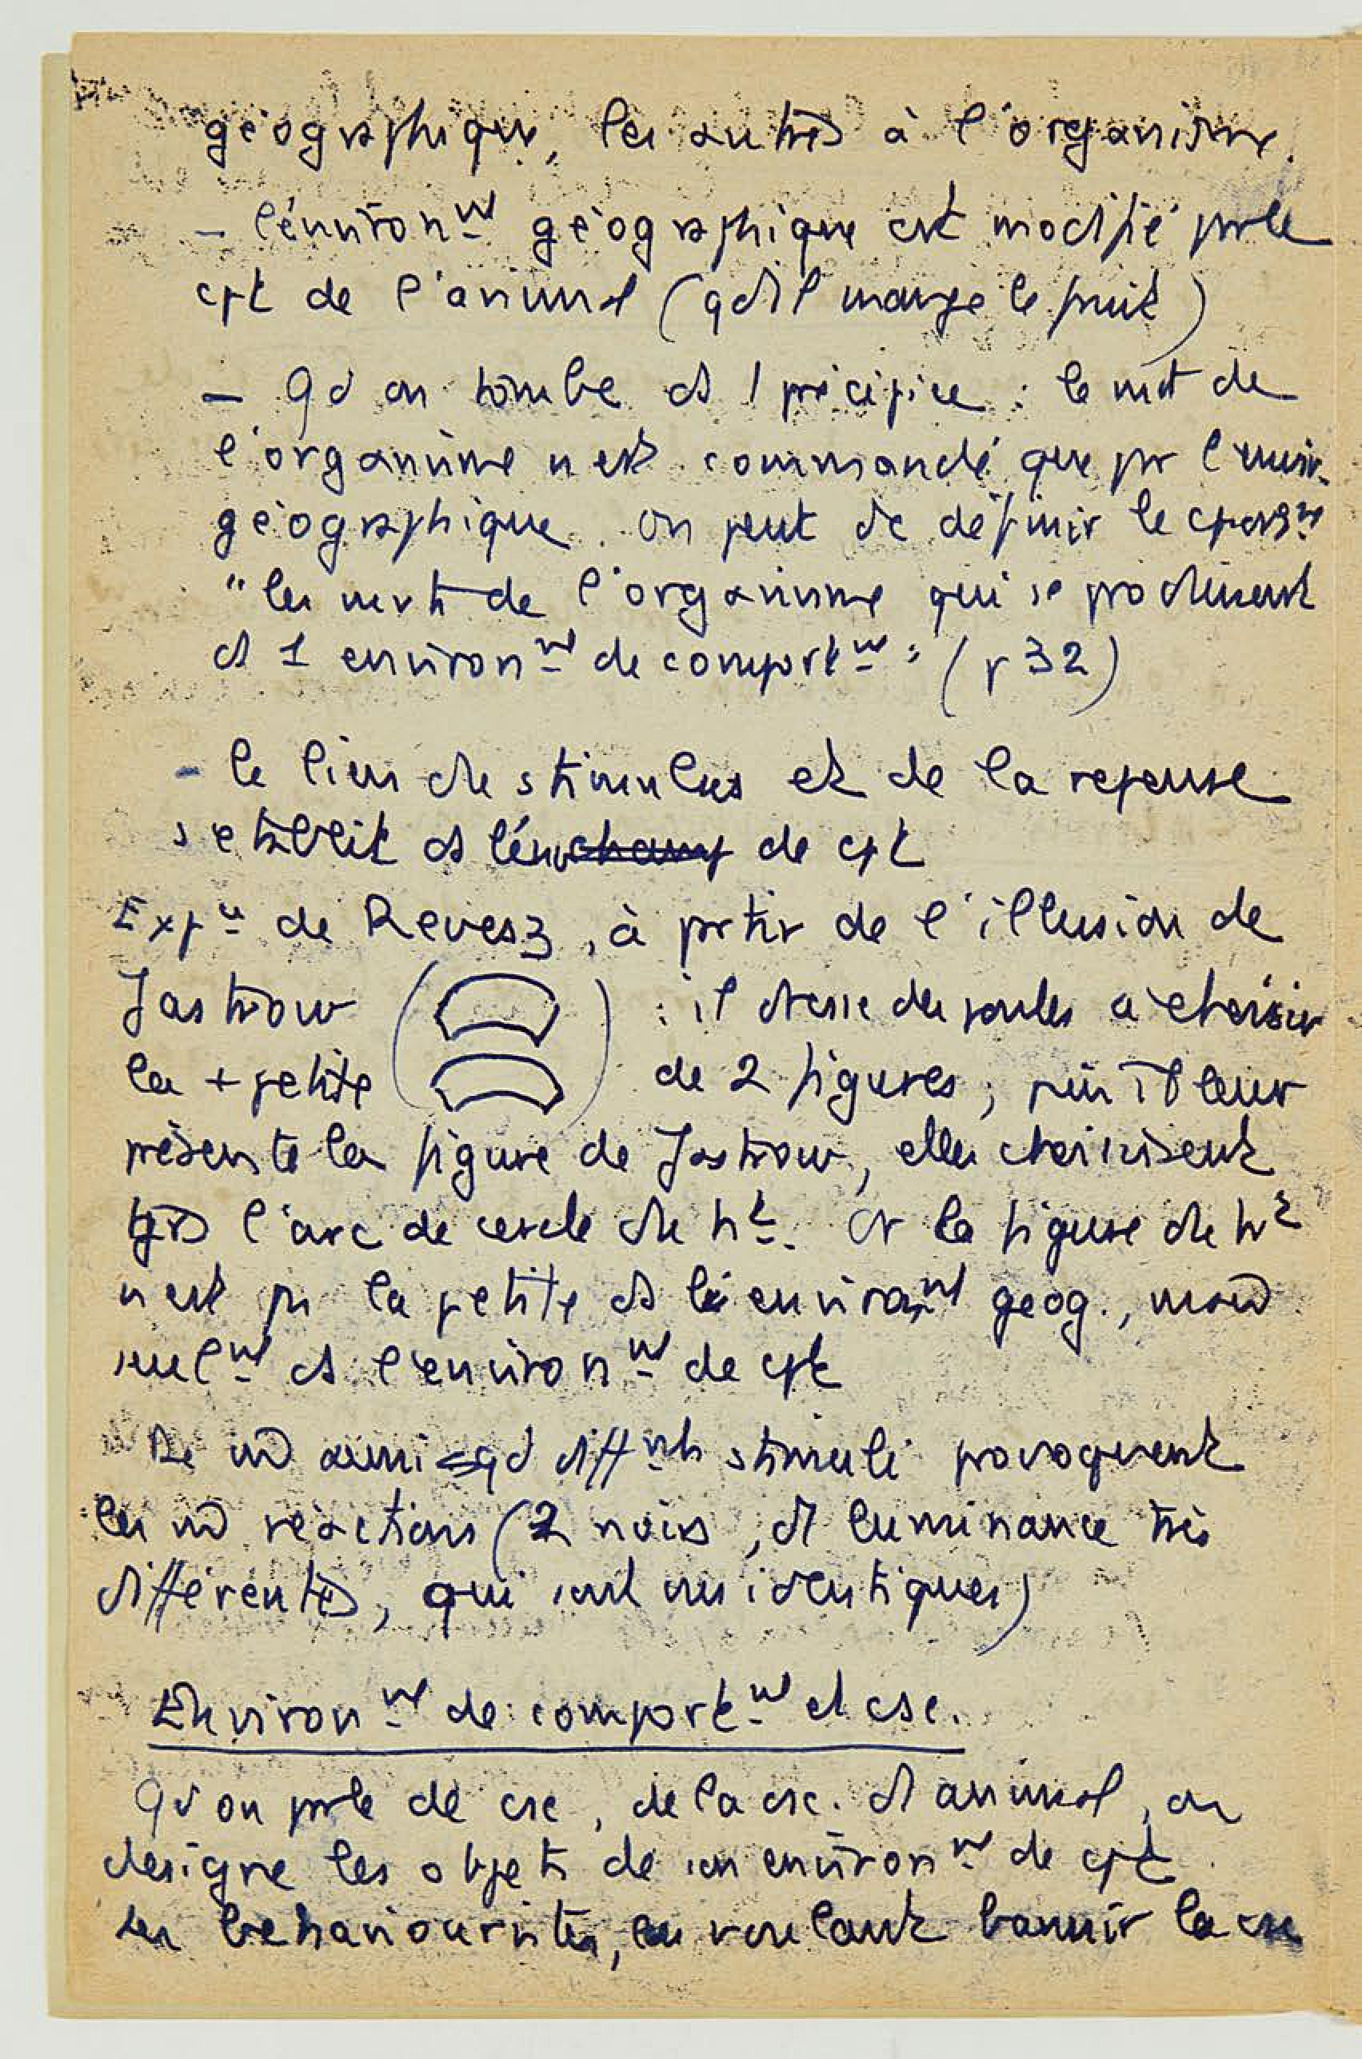 géographique, les autres à l'organisme.
- l'environnt géographique est modifié par le
cpt de l'animal (qd il mange le fruit)
- Qd on tombe ds 1 précipice : le mvt de
l'organisme n'est commandé que pr l'envir.
géographique. On peut dc définir le cportt
"les mvts de l'organisme qui se produisent
ds 1 environnt de comportt" (p 32)
- le lien du stimulus et de la réponse
s'établit ds l'env champ de cpt
Expce de Revesz, à partir de l'illusion de
Jastrow ( ) : il dresse des poules à choisir
la + petite de 2 figures ; puis il leur
présente la figure de Jastrow, elles choisissent
tjrs l'arc de cercle du ht. Or la figure du ht
n'est pas la petite ds l'environt géog., mais
seult ds l'environt de cpt
De m̂ aussi qd différts stimuli provoquent
les m̂ réactions (2 noirs, d luminance très
différentes, qui sont vus identiques)
Environt de comportt et csc.
Qd on parle de csc, de la csc. d'animal, on
désigne les objets de son environt de cpt.
Les behaviouristes, en voulant bannir la csc